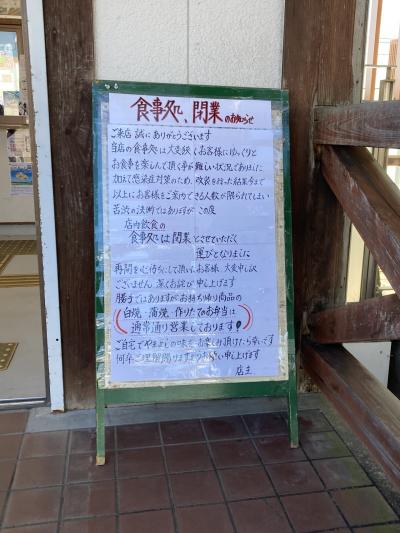 食事処、閉業のお知らせ
ご来店誠にありがとうございます
当店の食事処は大変狭くお客様にゆっくりと
お食事を楽しんで頂く事が難しい状況でありました
加えて感染症対策のため、改装を行った結果今まで
以上にお客様をご案内できる人数が限られてしまい
苦渋の決断ではありますが この度
店内飲食の
食事処は閉業とさせていただく
運びとなりました
再開を心待ちにして頂いたお客様、大変申し訳
ございません 深くお詫び申し上げます
勝手ではありますがお持ち帰り商品の
白焼・蒲焼・作りたてのお弁当は
通常通り営業しております!
ご自宅でやまよしの味をお楽しみ頂けたら幸いです
何卒ご理解賜りますようお願い申し上げます
店主